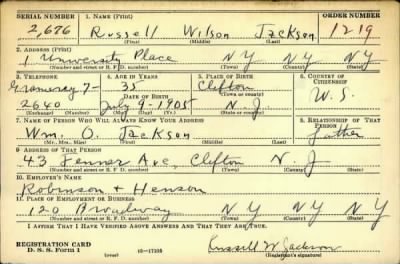 SERIAL NUMBER 1. NAME (Print) ORDER NUMBER
2,676 Russell Wilson Jackson 1219
(First) (Middle) (Last)
2. ADDRESS (Print)
1 University Place NY NY NY
(Number and street or R. F. D. number) (Town) (County) (State)
3. TELEPHONE 4. AGE IN YEARS 5. PLACE OF BIRTH 6. COUNTRY OF CITIZENSHIP
Gramercy 7- 35 Clifton
DATE OF BIRTH (Town or county) U.S.
2640 July 9-1905 N.J.
(Exchange) (Number) (Mo.) (Day) (Yr.) (State or country)
7. NAME OF PERSON WHO WILL ALWAYS KNOW YOUR ADDRESS 8. RELATIONSHIP OF THAT PERSON
Wm. O. Jackson Father
(Mr., Mrs., Miss) (First) (Middle) (Last)
9. ADDRESS OF THAT PERSON
43 Fenner Ave, Clifton N.J
(Number and street or R. F. D. number) (Town) (County) (State)
10. EMPLOYER'S NAME
Robinson + Henson
11. PLACE OF EMPLOYMENT OR BUSINESS
120 Broadway NY NY NY
(Number and street or R. F. D. number) (Town) (County) (State)
I AFFIRM THAT I HAVE VERIFIED ABOVE ANSWERS AND THAT THEY ARE TRUE.
REGISTRATION CARD Russell W Jackson
D. S. S. Form 1 (over) (Registrant's signature)